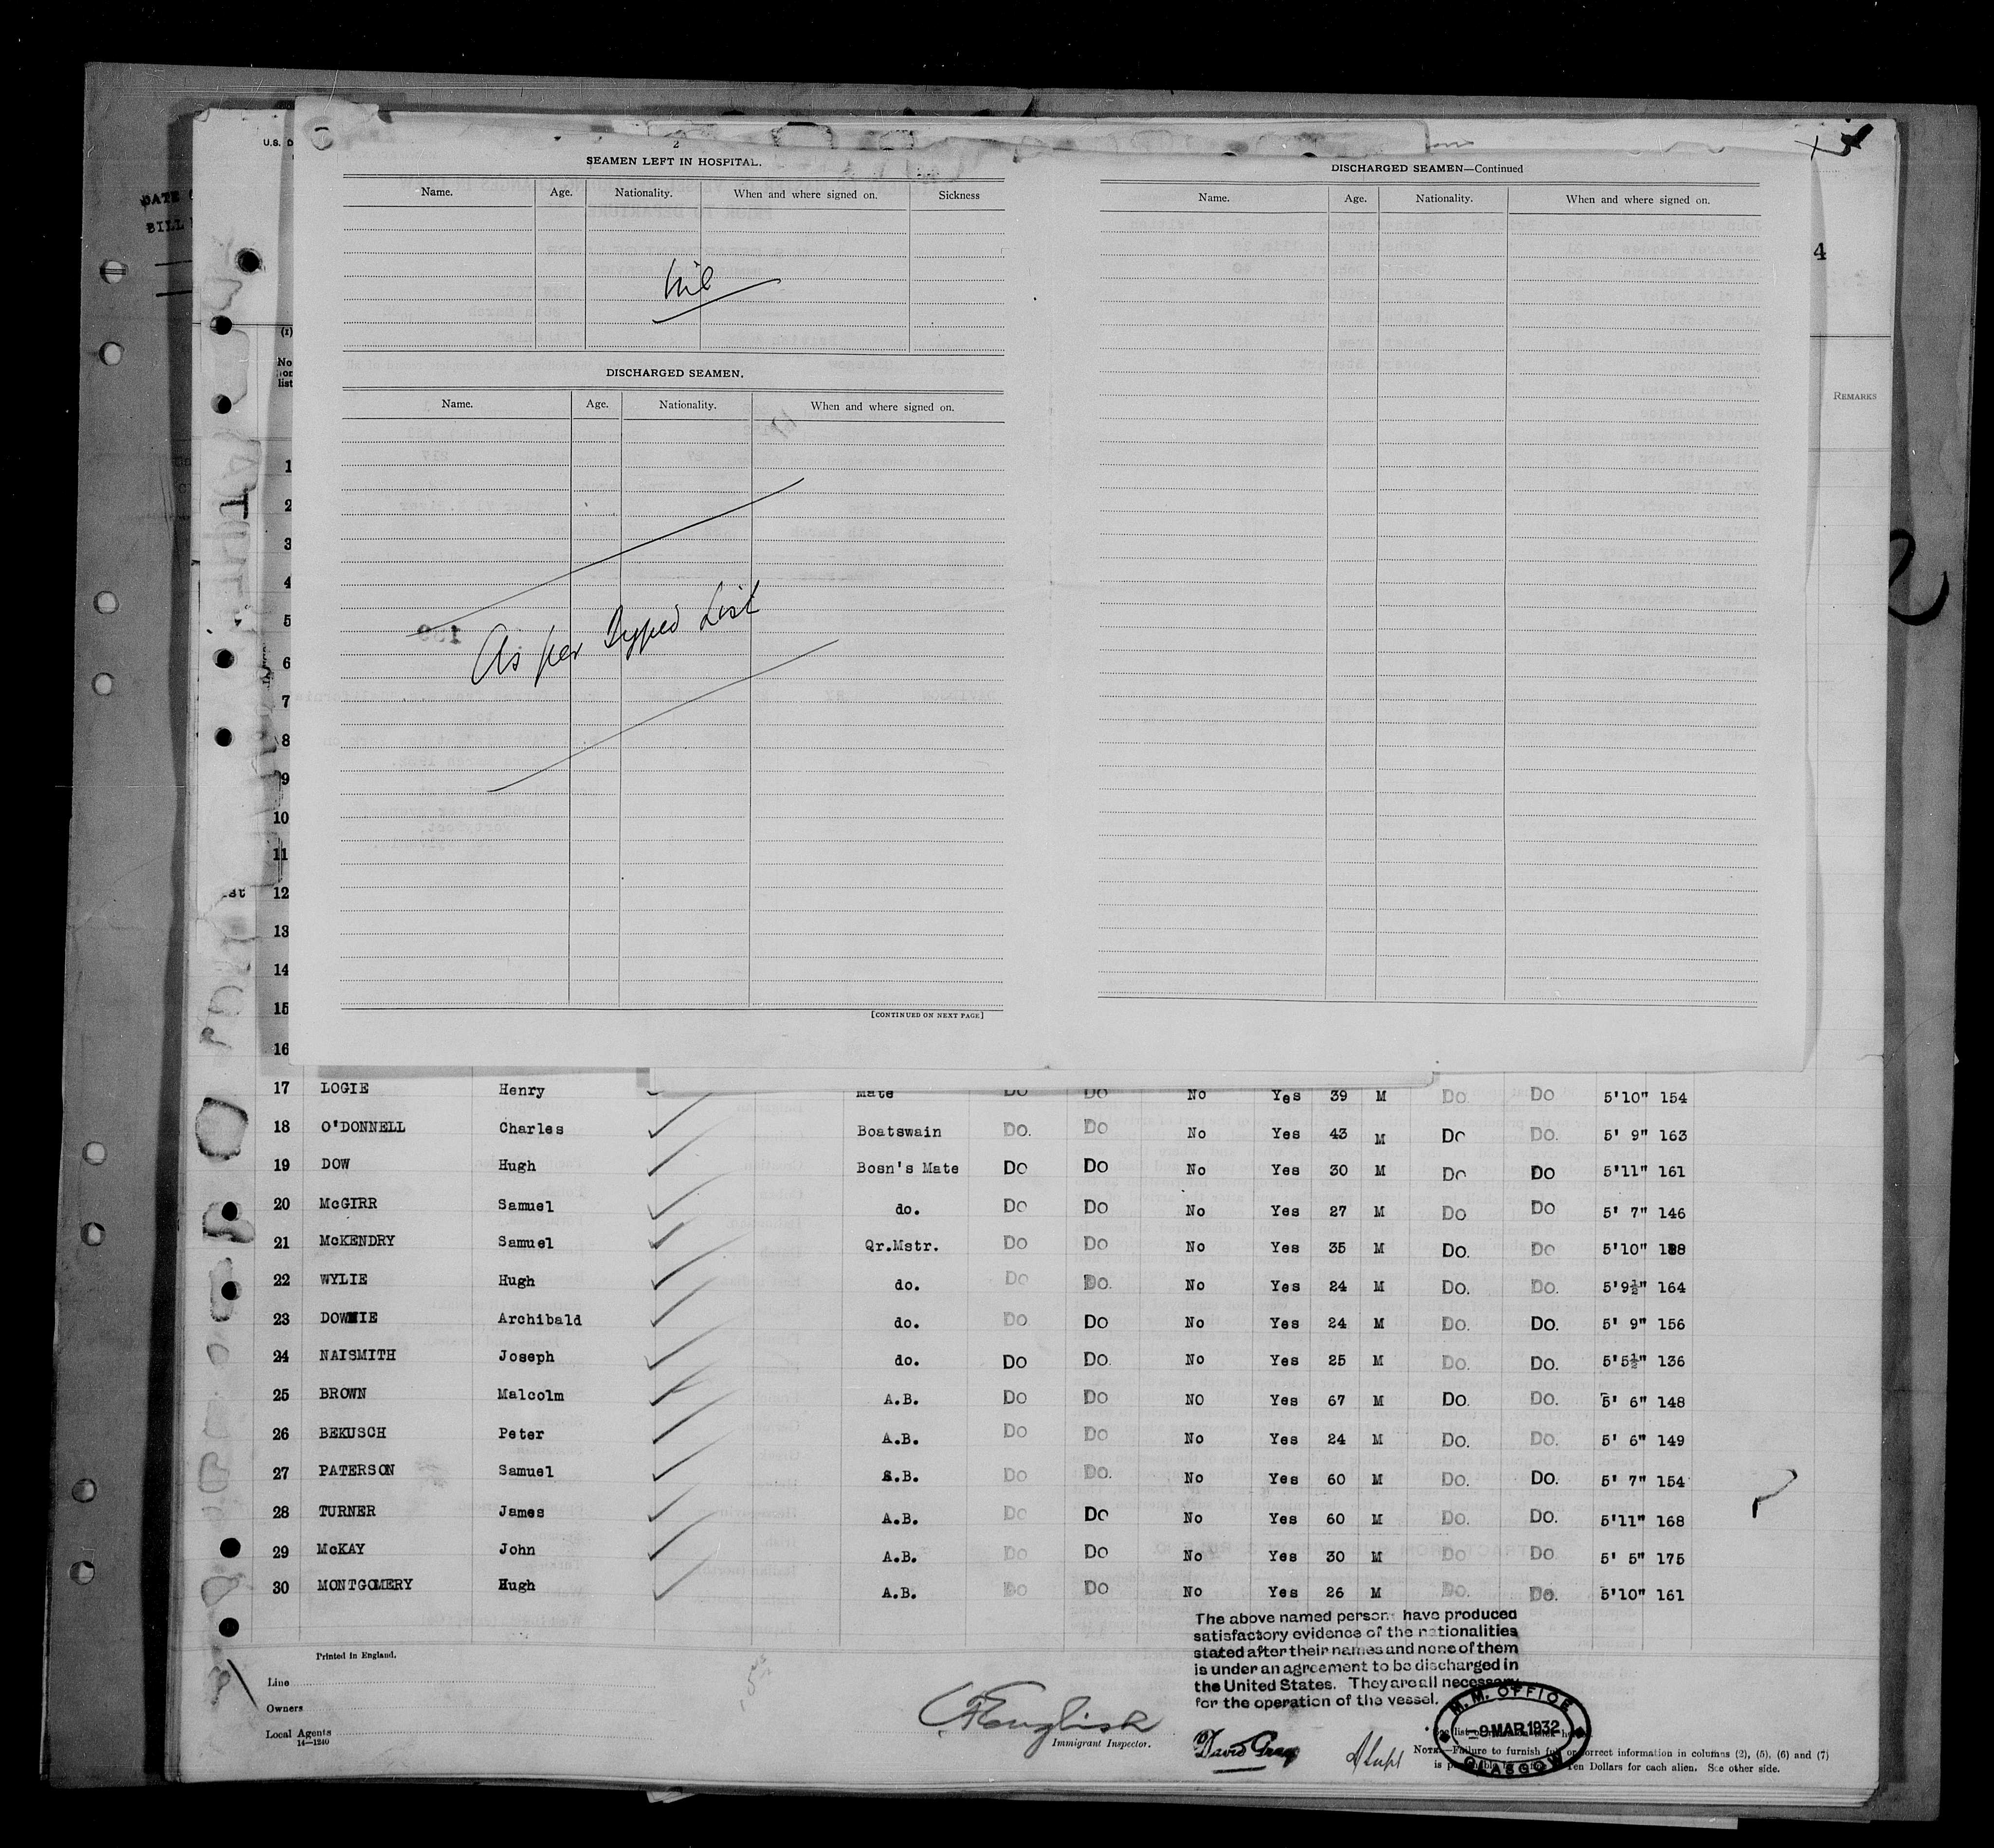 U.S. D
DATE
BILL
2
SEAMEN LEFT IN HOSPITAL.
Name. Age. Nationality. When and where signed on. Sickness
Nil
DISCHARGED SEAMEN.
Name. Age. Nationality. When and where signed on.
As per Typped List
[CONTINUED ON NEXT PAGE]
DISCHARGED SEAMEN—Continued
Name. Age. Nationality. When and where signed on.
4
REMARKS
No
on
list
1
2
3
4
5
6
7
8
9
10
11
12
13
14
15
16
17 LOGIE Henry Mate Do Do No Yes 39 M Do. Do 5'10" 154
18 O'DONNELL Charles Boatswain Do. Do No Yes 43 M Do Do. 5' 9" 163
19 DOW Hugh Bosn's Mate Do Do No Yes 30 M Do Do 5'11" 161
20 McGIRR Samuel do. Do Do No Yes 27 M Do Do 5' 7" 146
21 McKENDRY Samuel Qr.Mstr. Do Do No Yes 35 M Do. Do 5'10" 188
22 WYLIE Hugh do. Do Do. No Yes 24 M Do. Do. 5'9½" 164
23 DOWNIE Archibald do. Do Do No Yes 24 M Do. Do. 5' 9" 156
24 NAISMITH Joseph do. Do Do. No Yes 25 M Do. Do. 5'5½" 136
25 BROWN Malcolm A.B. Do Do NO Yes 67 M Do. Do. 5' 6" 148
26 BEKUSCH Peter A.B. Do Do No Yes 24 M Do. Do. 5' 6" 149
27 PATERSON Samuel A.B. Do Do. No Yes 60 M Do. Do. 5' 7" 154
28 TURNER James A.B. Do Do No Yes 60 M Do. Do. 5'11" 168
29 McKAY John A.B. Do Do No Yes 30 M Do Do. 5' 5" 175
30 MONTGOMERY Hugh A.B. Do Do No Yes 26 M Do. Do. 5'10" 161
The above named persons have produced
satisfactory evidence of the nationalities
stated after their names and none of them
is under an agreement to be discharged in
the United States. They are all necessary
for the operation of the vessel.
Printed in England.
Line
Owners
Local Agents
14—1240
English
Immigrant Inspector.
David Gray
A/Supt
M.M. OFFICE
–9 MAR 1932
GLASGOW
NOTE.—Failure to furnish full or correct information in columns (2), (5), (6) and (7)
is punishable by Ten Dollars for each alien. See other side.